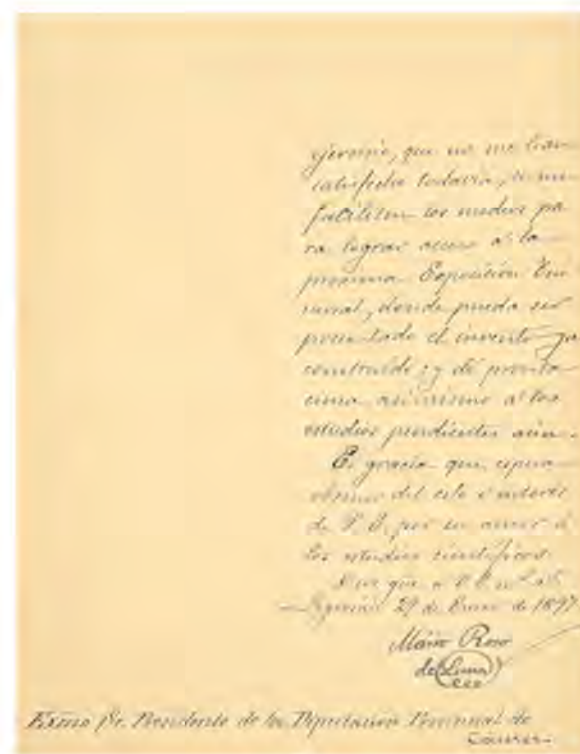 que no me han
satisfecho todavía, se me
faciliten los medios pa
ra lograr acceso a la
próxima Exposición Uni
versal, donde pueda ser
presentado el invento ya
construido; y dé pronta
cima, asimismo a los
estudios pendientes aún.
Es gracia que espera
obtener del celo e interés
de V. E. por su amor á
los estudios científicos.
29 de Enero de 1897
Mario Roso
de Luna
Exmo Sr. Presidente de la Diputación Provincial de
Cáceres.